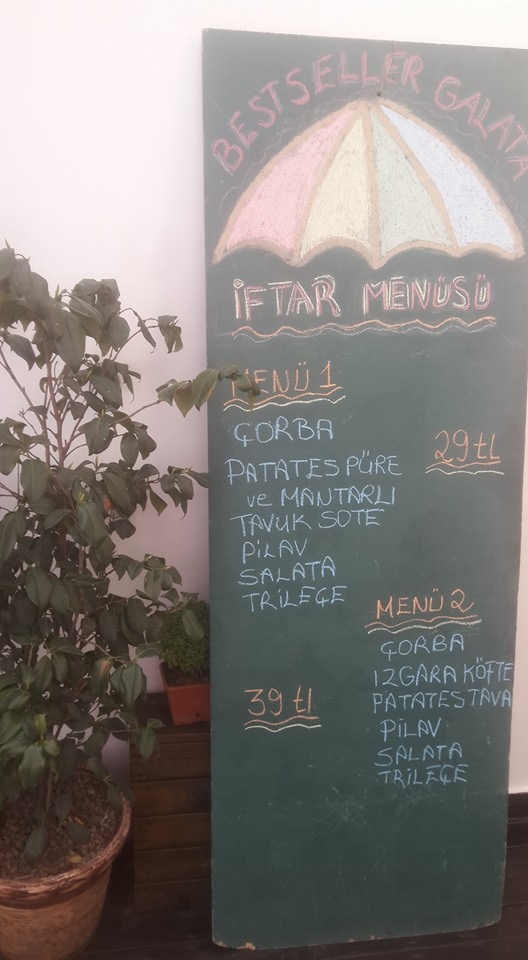 BESTSELLER GALATA
İFTAR MENÜSÜ
MENÜ 1
ÇORBA
29 tL
PATATES PÜRE
ve MANTARLI
TAVUK SOTE
PİLAV
SALATA
TRİLEÇE
MENÜ 2
ÇORBA
IZGARA KÖFTE
PATATES TAVA
PİLAV
SALATA
TRİLEÇE
39 tl